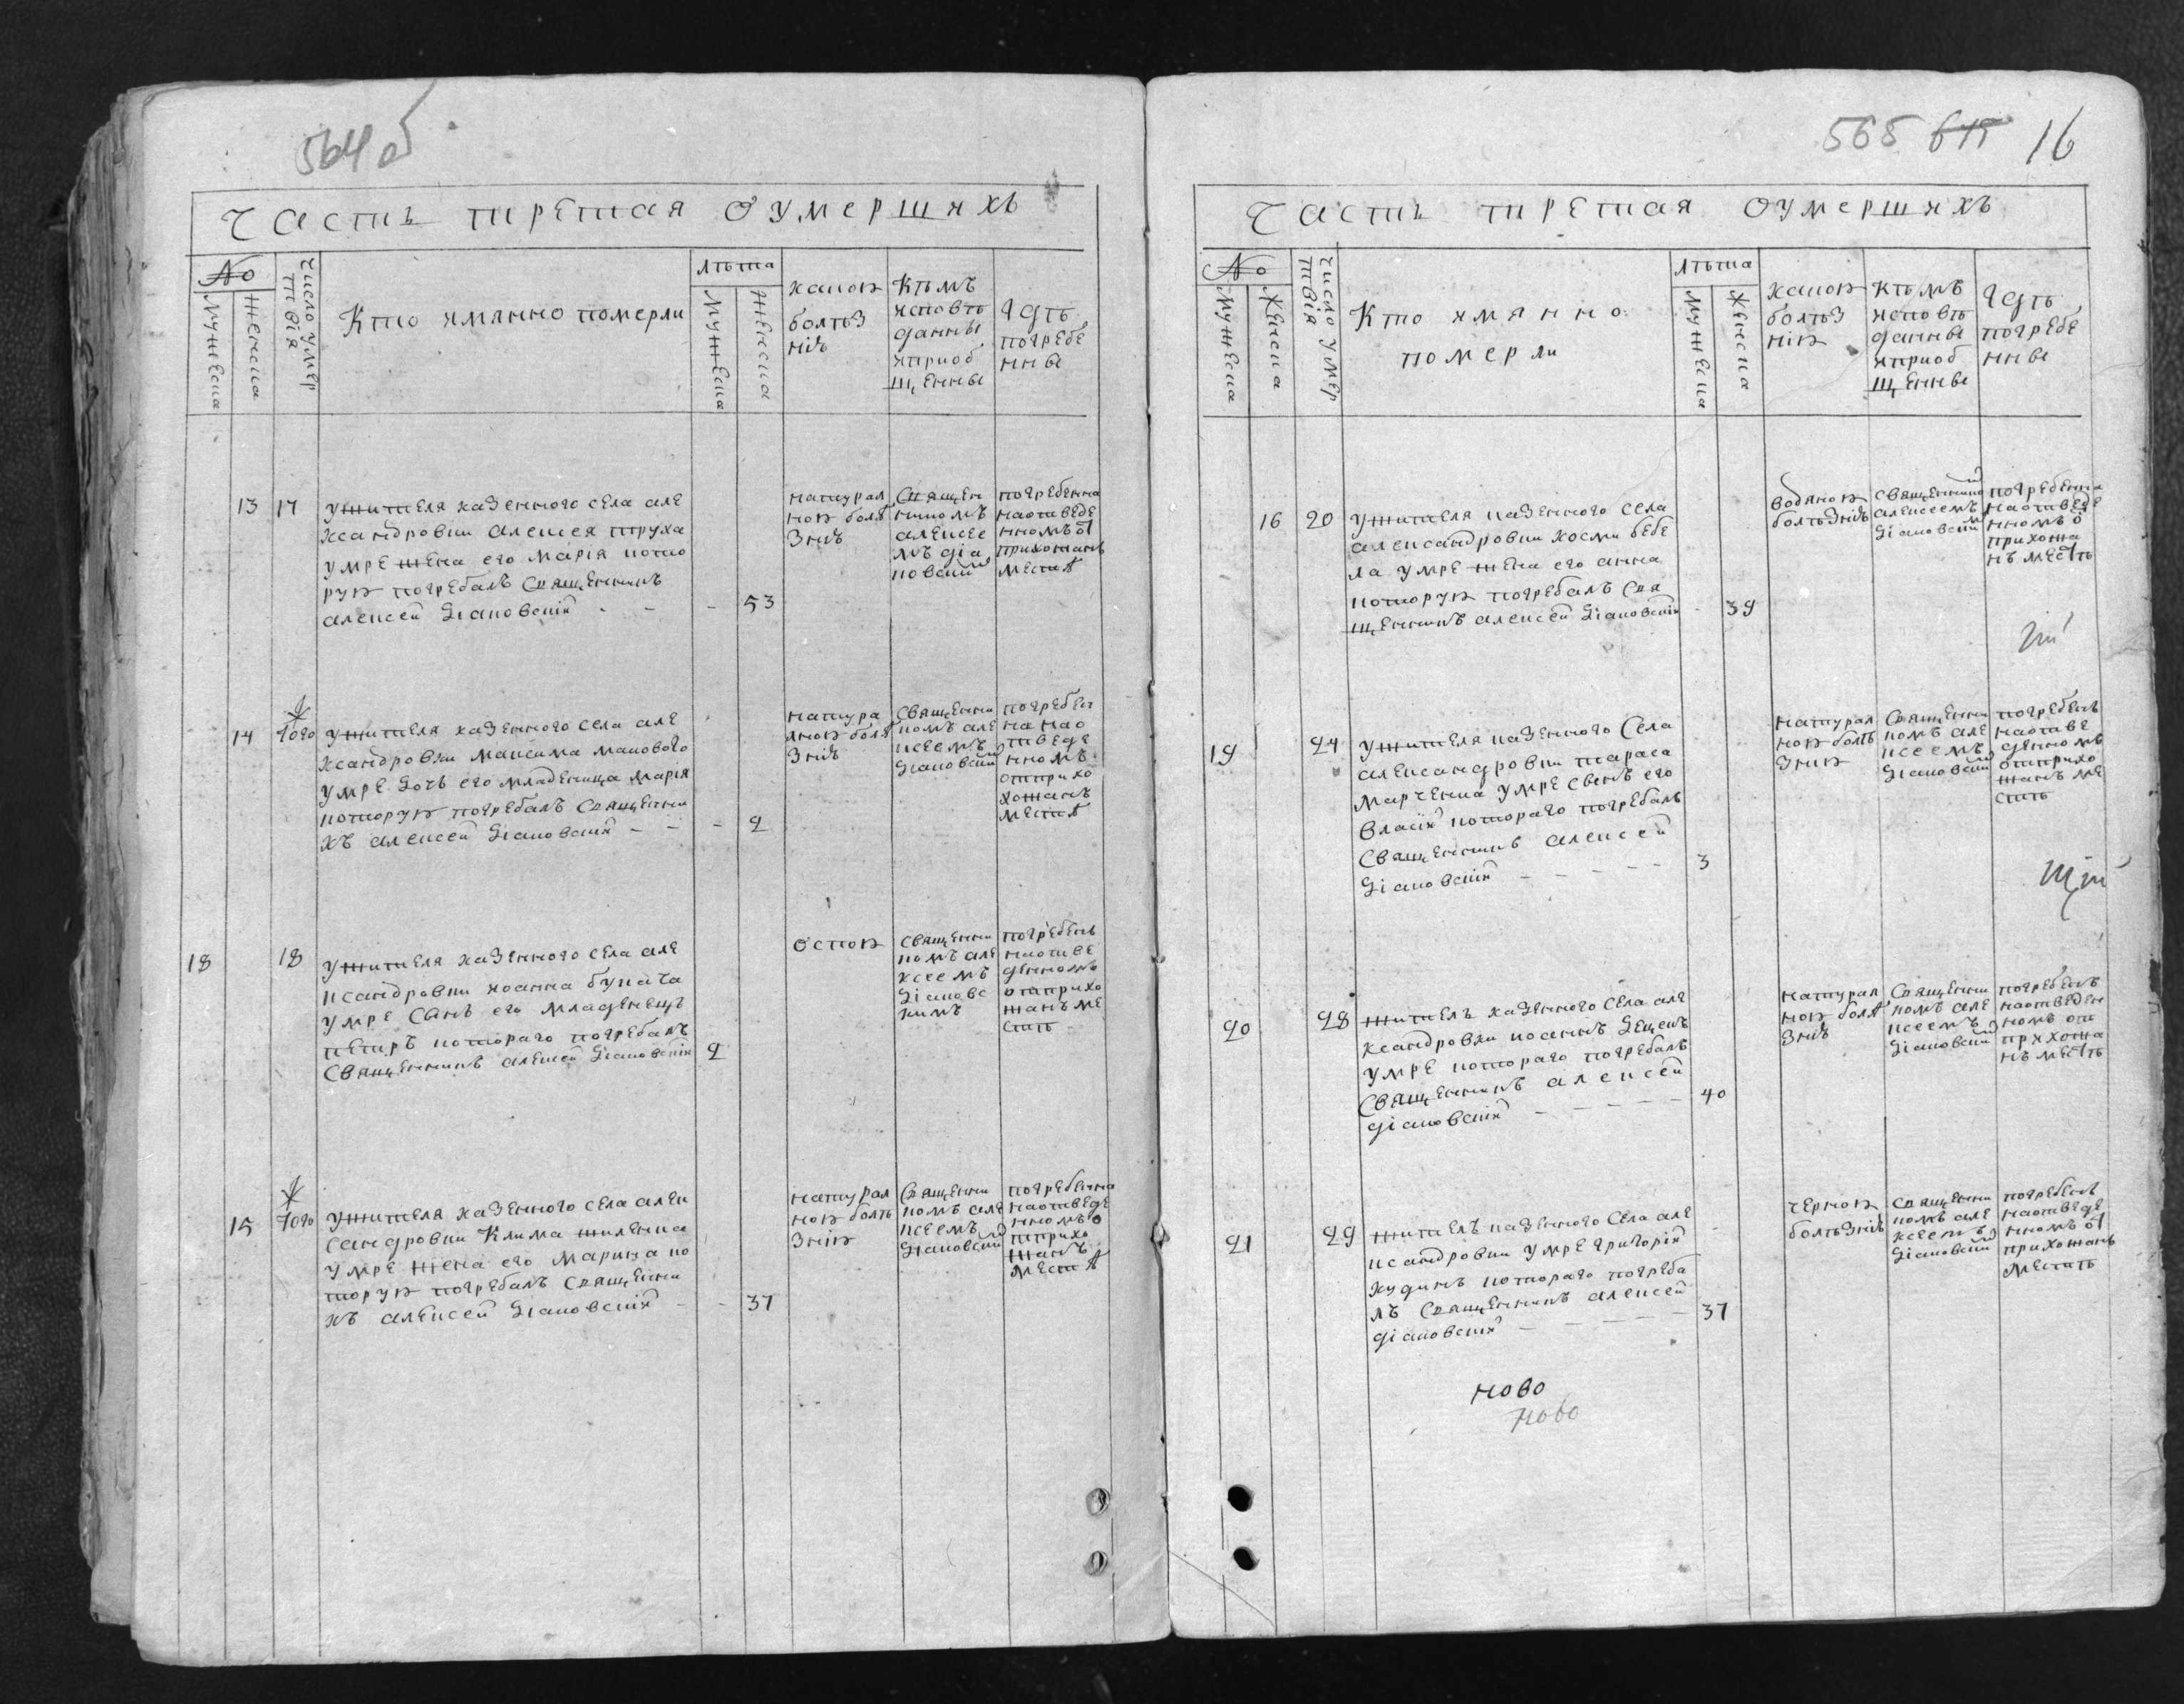 564 об
Часть третая оумершихъ
№
Мужеска
Женска
Число умер
твія
Кто имянно померли
лѣта
Мужеска
Женска
какою
болѣз
нію
Кѣмъ
исповѣ
данны
ипріоб
щенны
Гдѣ
погребе
нны
13 17
Ужителя казенного села але
ксандровки алексея труха
умре жена его марія кото
рую погребалъ Священникъ
алексей Діаковскій - - - 53
натурал
ною болѣ
знію
Священ
никомъ
алексее
мъ діа
ковским
погребенна
наотведе
нномъ от
прихожанъ
местѣ
14 того
Ужителя казенного села але
ксандровки максима макового
умре дочь его младеница марія
которую погребалъ Священни
къ алексей Діаковскій - - - 2
натура
лною болѣ
знію
Священни
комъ але
ксеемъ
Діаковским
погребен
на нао
тведе
нномъ
отприхо
хожанъ
местѣ
18 18
Ужителя казенного села але
ксандровки иоанна букача
умре Сынъ его младенецъ
петръ которого погребалъ
Священникъ алексей Діаковскій 2
оспою
Священни
комъ але
ксеемъ
Діаковс
кимъ
погребенъ
наотве
денномъ
отприхо
жанъ ме
стѣ
15 того
Ужителя казенного села алек
сандровки Клима шиленка
умре жена его марина ко
торую погребалъ Священни
къ алексей Діаковскій - - 37
натурал
ною болѣ
знію
Священни
комъ але
ксеемъ
Діаковским
погребенна
наотведе
нномъ о
тприхо
жанъ
местѣ
565 16
Часть третая оумершихъ
№
Мужеска
Женска
Число умер
твія
Кто имянно
померли
лѣта
Мужеска
Женска
какою
болѣз
нію
кѣмъ
исповѣ
данны
ипріоб
щенны
Гдѣ
погребе
нны
16 20
Ужителя казенного села
александровки косми бебе
ла умре жена его анна
которую погребалъ Свя
щенникъ алексей Діаковскій - 39
водяною
болѣзнію
Священнико
алексеемъ
Діаковским
погребенна
наотведе
нномъ о
прихожа
нъ местѣ
19 24
Ужителя казенного Села
александровки тараса
марченка умре Сынъ его
власій которого погребалъ
Священникъ алексей
Діаковскій - - - - - 3
натурал
ною болѣ
знію
Священни
комъ але
ксеемъ
Діаковским
погребенъ
наотве
денномъ
отприхо
жанъ ме
стѣ
20 28
житель казенного села але
ксандровки иоаннъ Деценъ
умре которого погребалъ
Священникъ алексей
діаковскій - - - - - 40
натурал
ною болѣ
знію
Священни
комъ але
ксеемъ
Діаковским
погребенъ
наотведен
номъ от
прихожа
нъ местѣ
21 29
житель казенного села але
ксандровки умре григорій
кудинъ которого погреба
лъ Священникъ алексей
діаковскій - - - - - 37
черною
болѣзнію
Священни
комъ але
ксеемъ
Діаковским
погребенъ
наотведе
нномъ от
прихожанъ
местѣ
ново
ново